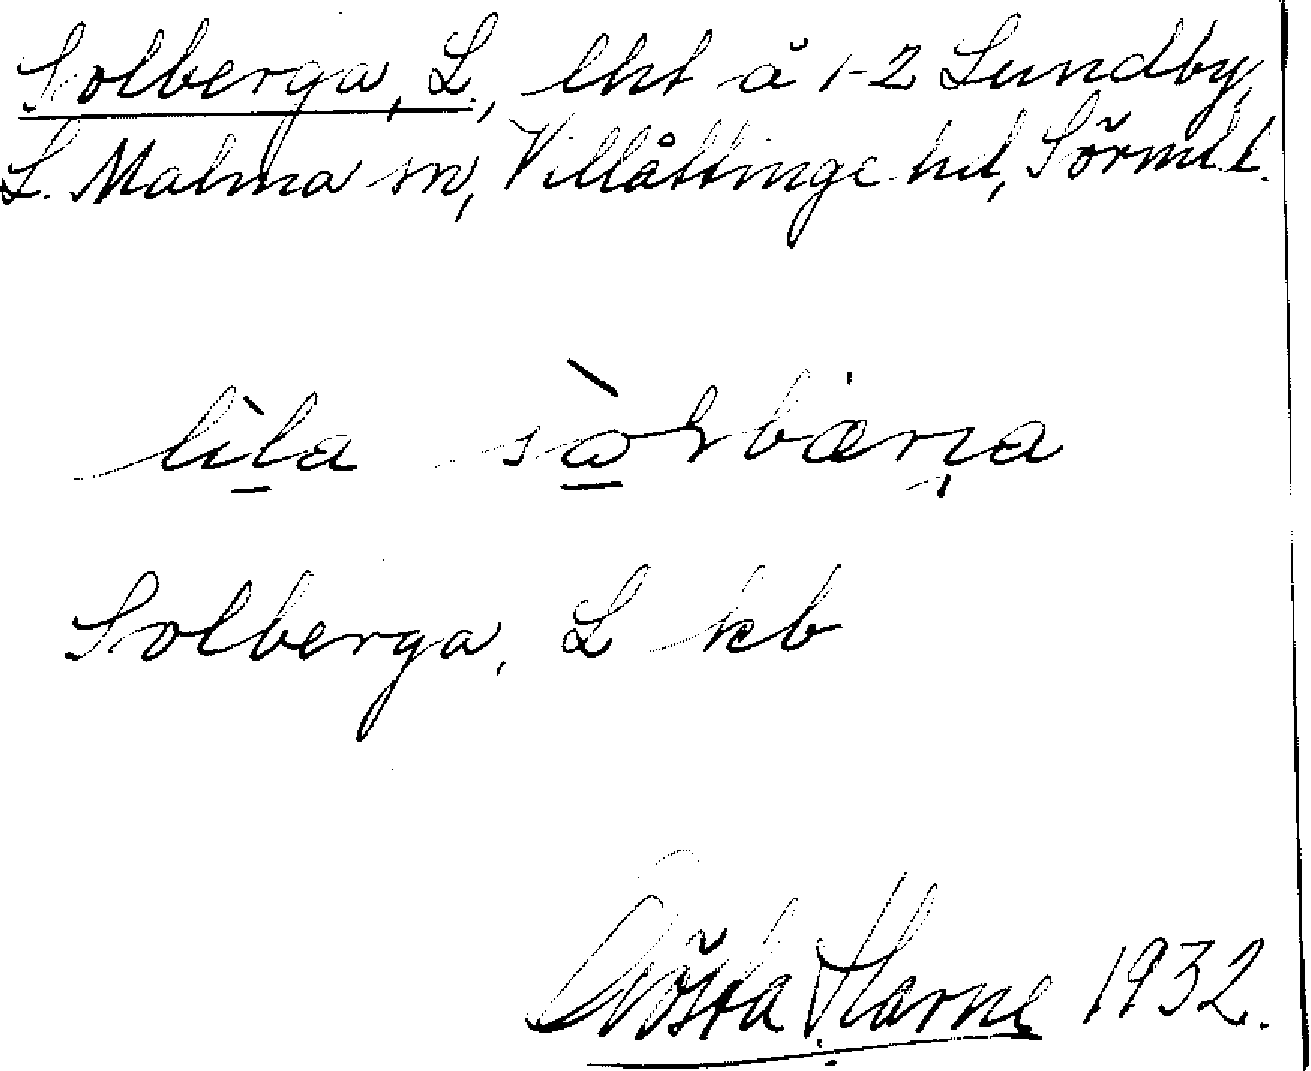 Solberga, L., lht å 1-2 Lundby,
L. Malma sn, Villåttinge hd, Sörml. l.
lìla
Solberga, L kb
Gösta 1932.